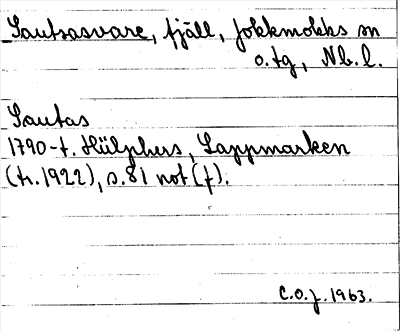 Sautsasvare, fjäll, Jokkmokks sn
o. tg, Nb. l.
Sautas
1790-t. Hülphers, Lappmarken
(tr. 1922), s. 81 not (f).
C.O.J. 1963.